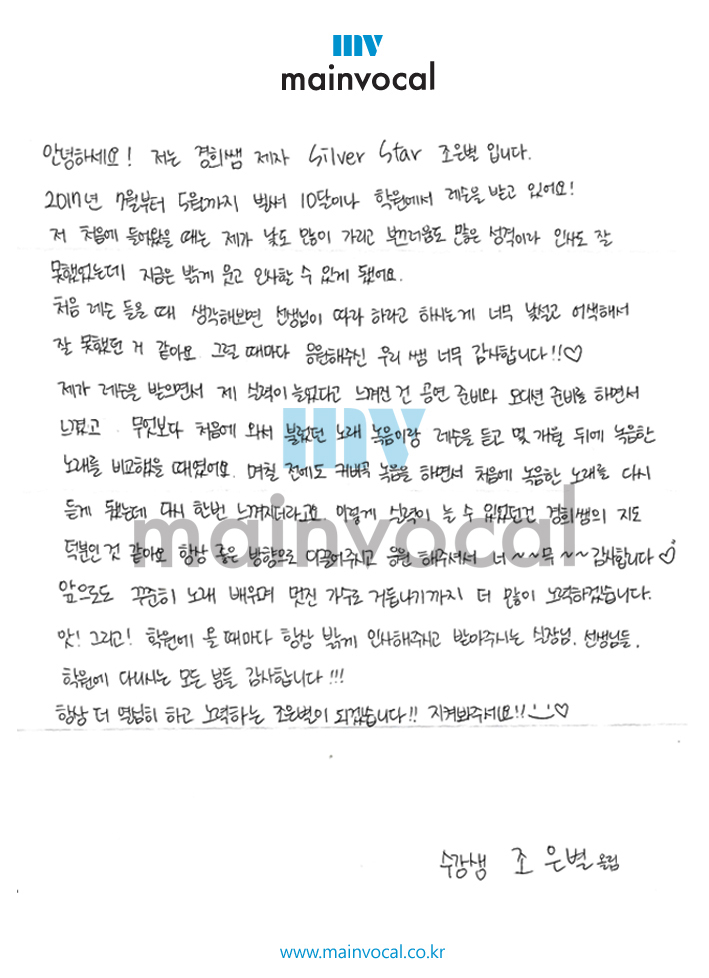 mv
mainvocal
안녕하세요! 저는 경희쌤 제자 Silver Star 조은별 입니다.
2017년 7월부터 5월까지 벌써 10달이나 학원에서 레슨을 받고 있어요!
저 처음에 들어왔을 때는 제가 낯도 많이 가리고 부끄러움도 많은 성격이라 인사도 잘
못했었는데 지금은 밝게 웃고 인사할 수 있게 됐어요.
처음 레슨 들을 때 생각해보면 선생님이 따라 하라고 하시는게 너무 낯설고 어색해서
잘 못했던 거 같아요 그럴 때마다 응원해주신 우리 쌤 너무 감사합니다!!♡
제가 레슨을 받으면서 제 실력이 늘었다고 느껴진 건 공연 준비와 오디션 준비를 하면서
느꼈고 무엇보다 처음에 와서 불렀던 노래 녹음이랑 레슨을 듣고 몇 개월 뒤에 녹음한
노래를 비교했을 때였어요. 며칠 전에도 커버곡 녹음을 하면서 처음에 녹음한 노래를 다시
듣게 됐는데 다시 한번 느껴지더라고요. 이렇게 실력이 늘 수 있었던건 경희쌤의 지도
덕분인 것 같아요 항상 좋은 방향으로 이끌어주시고 응원 해주셔서 너~~무~~감사합니다♡
앞으로도 꾸준히 노래 배우며 멋진 가수로 거듭나기까지 더 많이 노력하겠습니다.
앗! 그리고! 학원에 올 때마다 항상 밝게 인사해주시고 받아주시는 실장님, 선생님들,
학원에 다니시는 모든 분들 감사합니다!!!
항상 더 열심히 하고 노력하는 조은별이 되겠습니다!! 지켜봐주세요!!♡
mv
mainvocal
수강생 조은별 올림
www.mainvocal.co.kr